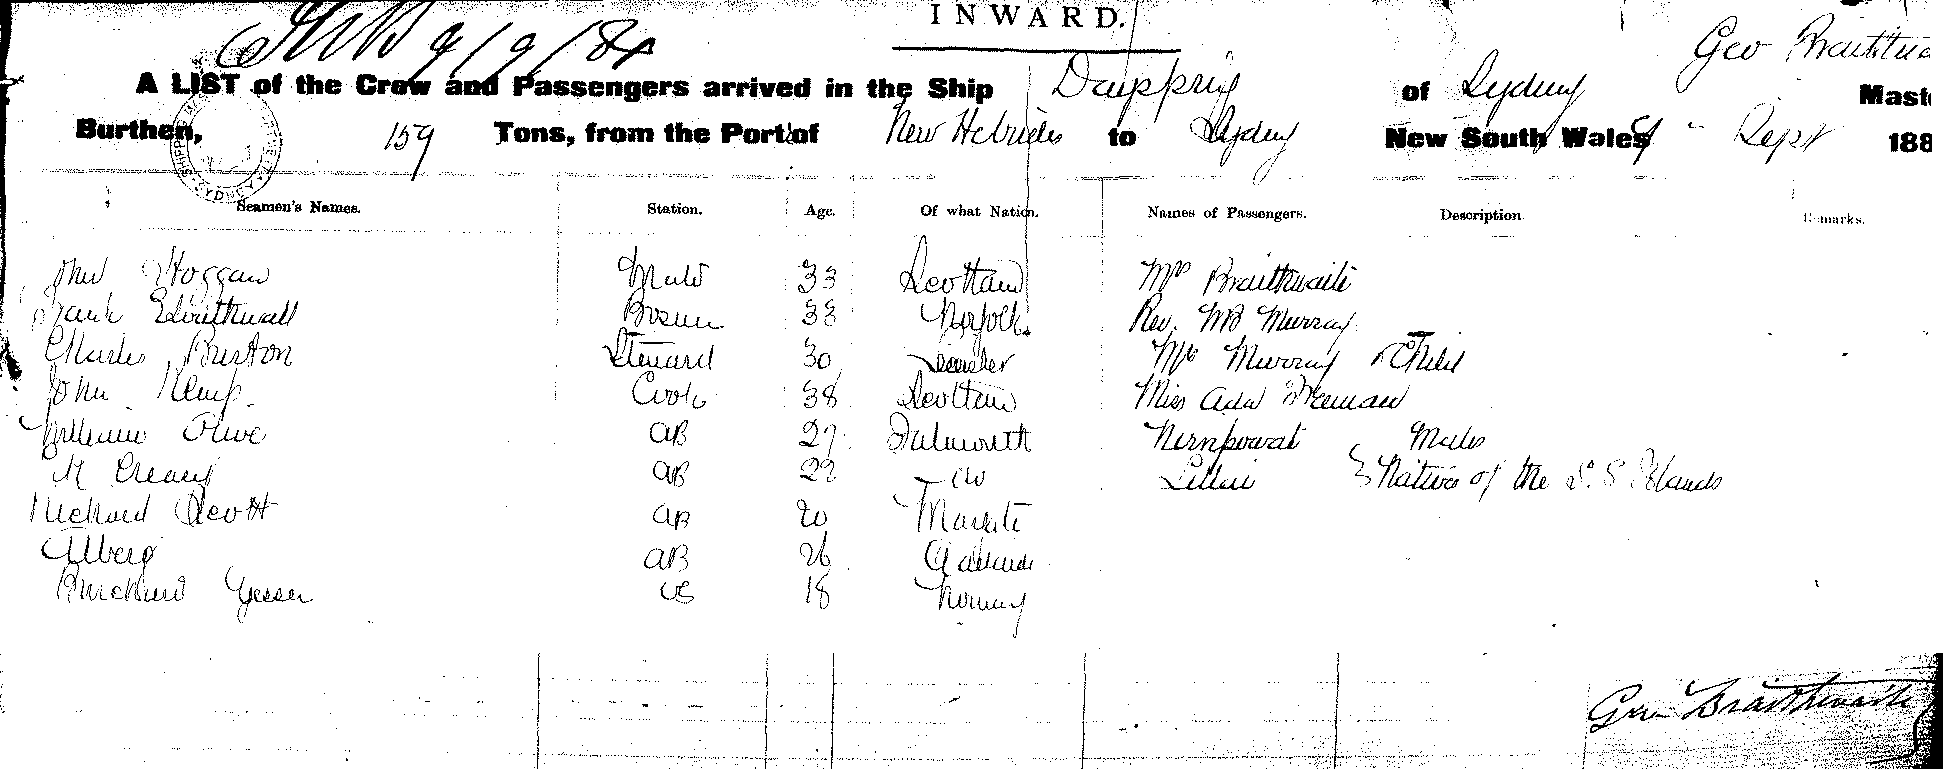 INWARD.
9/9/84
Geo Braithwa
A LIST of the Crew and Passengers arrived in the Ship Dayspring of Sydney Mast
Burthen, 159 Tons, from the Port of New Hebrides to Sydney New South Wales 9 - Sept 188
Seamen's Names. Station. Age. Of what Nation. Names of Passengers. Description Remarks.
John Hoggan Mate 33 Scotland Mrs Braithwaite
Frank Bosun 33 Norfolk Rev. Murray
Charles Burton Steward 30 Mrs Murray & Child
John Kemp Cook 38 Scotland Miss Ada
William Olive AB 29 Falmouth Males
AB 22 do Natives of the S. S Islands
Richard Scott AB 20 Margate
AB 26 Adelaide
OS 18 Norway
Geo Braithwaite